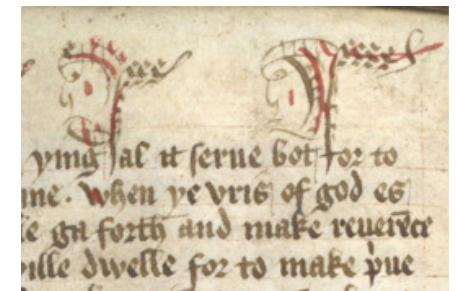 ying sal it serue bot for to
me. When ye vris of god es
e ga forth and make reuerēce
ille dwelle for to make